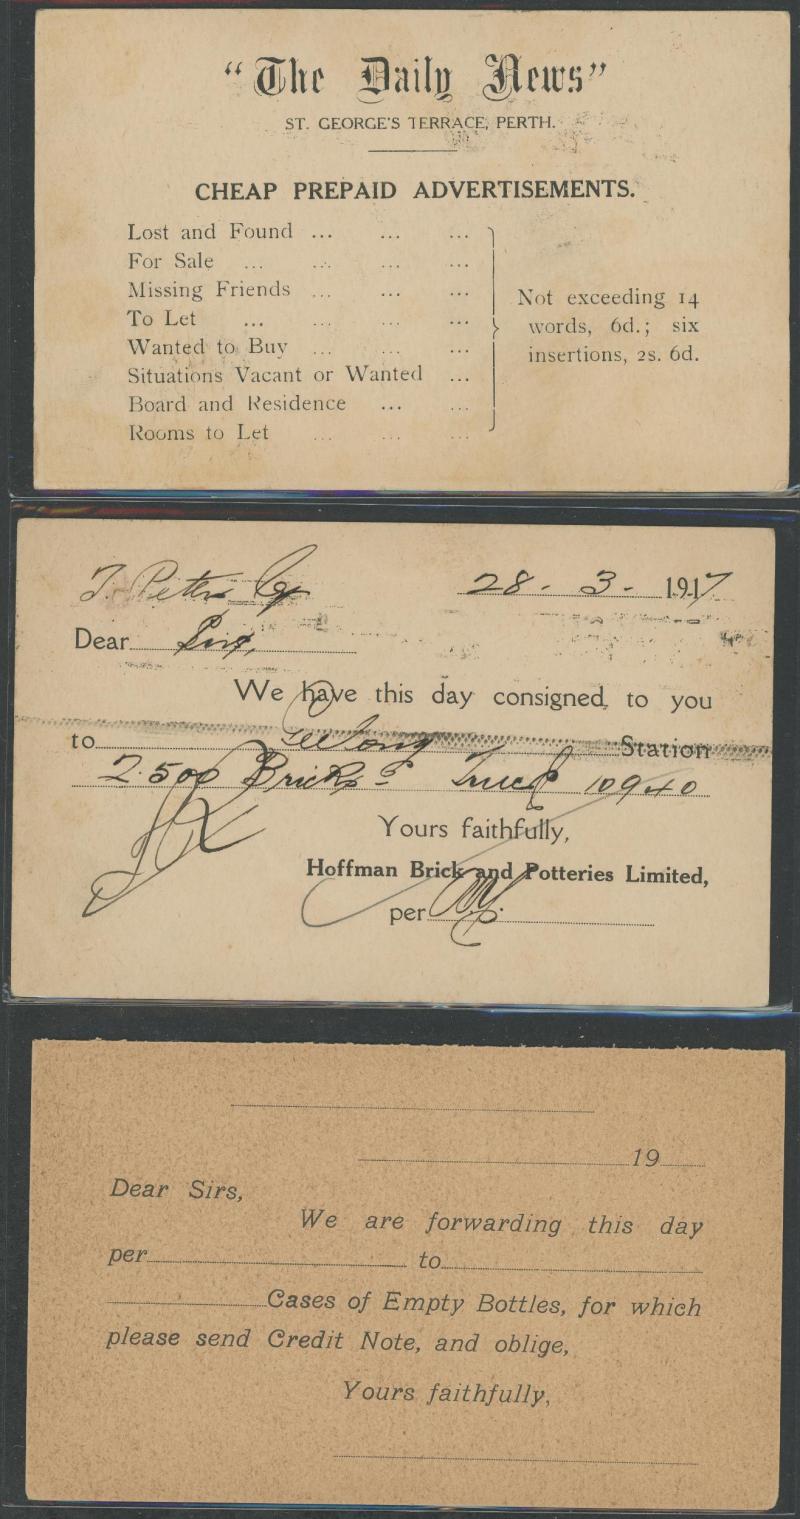 "The Daily News"
ST. GEORGE'S TERRACE, PERTH.
CHEAP PREPAID ADVERTISEMENTS.
Lost and Found ... ... ...
For Sale ... ... ... ...
Missing Friends ... ... ...
To Let ... ... ... ...
Wanted to Buy ... ... ...
Situations Vacant or Wanted ...
Board and Residence ... ...
Rooms to Let ... ... ...
Not exceeding 14
words, 6d.; six
insertions, 2s. 6d.
28 - 3 - 1917
Dear Sir,
We have this day consigned to you
to Geelong Station
2500 Bricks Truck 10940
Yours faithfully,
Hoffman Brick and Potteries Limited,
per
19
Dear Sirs,
We are forwarding this day
per to
Cases of Empty Bottles, for which
please send Credit Note, and oblige,
Yours faithfully,